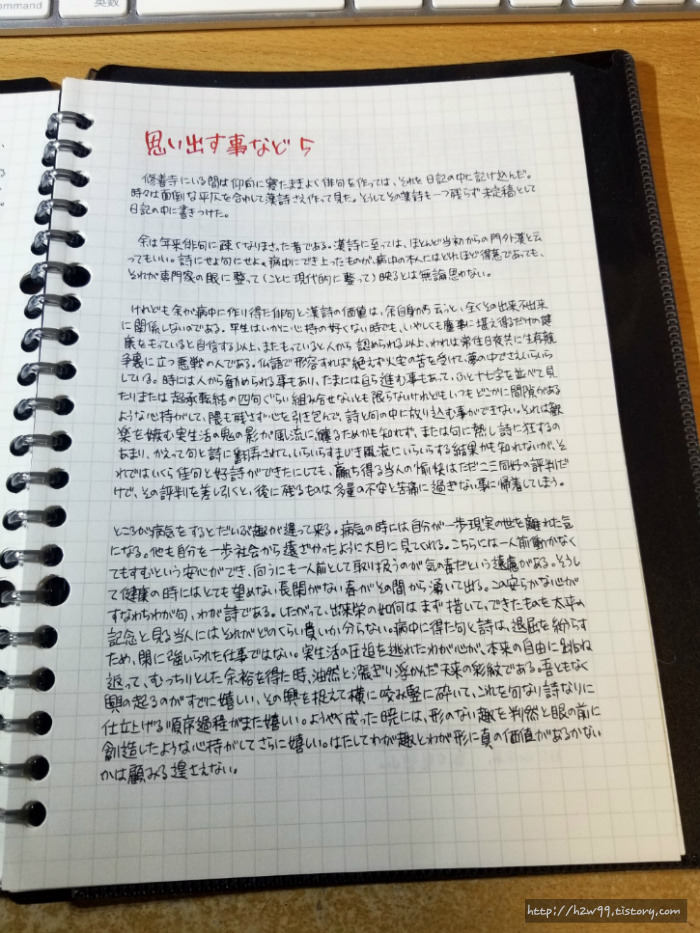 ommand
英数
思い出す事など 5
修善寺にいる間は仰向に寝たままよく俳句を作っては、それを日記の中に記け込んだ。
時々は面倒な平仄を合わして漢詩さえ作って見た。そうしてその漢詩も一つ残らず未定稿として
日記の中に書きつけた。
余は年来俳句に疎くなりまさった者である。漢詩に至っては、ほとんど当初からの門外漢と云
ってもいい。詩にせよ句にせよ、病中にでき上ったものが、病中の本人にはどれほど得意であっても、
それが専門家の眼に整って(ことに現代的に整って)映るとは無論思わない。
けれども余が病中に作り得た俳句と漢詩の価値は、余自身から云うと、全くその出来不出来
に関係しないのである。平生はいかに心持の好くない時でも、いやしくも塵事に堪え得るだけの健
康をもっていると自信する以上、またもっていると人から認められる以上、われは常住日夜共に生存競
争裏に立つ悪戦の人である。仏語で形容すれば絶えず火宅の苦を受けて、夢の中でさえいらいら
している。時には人から勧められる事もあり、たまには自ら進む事もあって、ふと十七字を並べて見
たりまたは起承転結の四句ぐらい組み合せないとも限らないけれどもいつもどこかに間隙がある
ような心持がして、隈も残さず心を引き包んで、詩と句の中に放り込む事ができない。それは歓
楽を嫉む実生活の鬼の影が風流に纏るためかも知れず、または句に熱し詩に狂するの
あまり、かえって句と詩に翻弄されて、いらいらすまじき風流にいらいらする結果かも知れないが、そ
れではいくら佳句と好詩ができたにしても、贏ち得る当人の愉快はただ二三同好の評判だ
けで、その評判を差し引くと、後に残るものは多量の不安と苦痛に過ぎない事に帰着してしまう。
ところが病気をするとだいぶ趣が違って来る。病気の時には自分が一歩現実の世を離れた気
になる。他も自分を一歩社会から遠ざかったように大目に見てくれる。こちらには一人前働かなく
てもすむという安心ができ、向うにも一人前として取り扱うのが気の毒だという遠慮がある。そうし
て健康の時にはとても望めない長閑かな春がその間から湧いて出る。この安らかな心が
すなわちわが句、わが詩である。したがって、出来栄の如何はまず措いて、できたものを太平の
記念と見る当人にはそれがどのくらい貴いか分らない。病中に得た句と詩は、退屈を紛らす
ため、閑に強いられた仕事ではない。実生活の圧迫を逃れたわが心が、本来の自由に跳ね
返って、むっちりとした余裕を得た時、油然と漲ぎり浮かんだ天来の彩紋である。吾ともなく
興の起るのがすでに嬉しい、その興を捉えて横に咬み竪に砕いて、これを句なり詩なりに
仕立上げる順序過程がまた嬉しい。ようやく成った暁には、形のない趣を判然と眼の前に
創造したような心持がしてさらに嬉しい。はたしてわが趣とわが形に真の価値があるかない
かは顧みる遑さえない。
http://h2w99.tistory.com